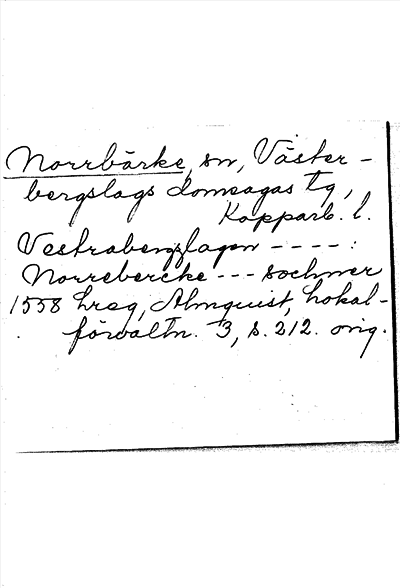 Norrbärke, sn, Väster-
bergslags domsagas tg,
Kopparb. l.
Vestrabergzlagen ---- :
Norrebercke --- sochner
1558 hreg, Almquist, Lokal-
förvaltn. 3, s. 212. orig.